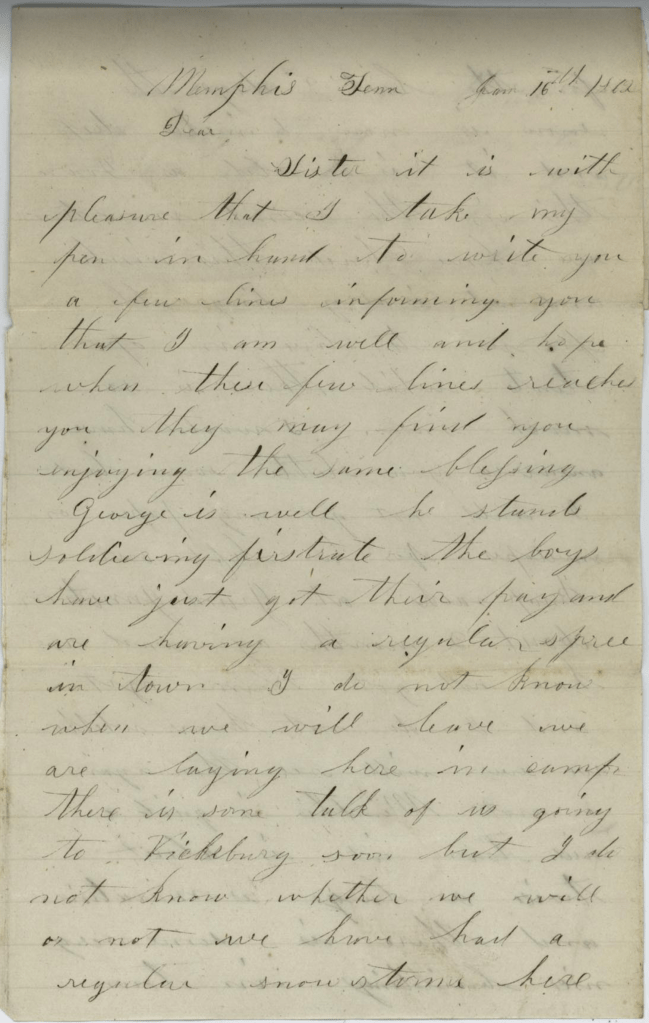 Memphis Tenn Jan 16th 186
Dear
Sister it is with
pleasure that I take my
pen in hand to write you
a few lines informing you
that I am well and hope
when these few lines reaches
you they may find you
enjoying the same blessing
George is well he stands
soldiering firstrate the boys
have just got their pay and
are having a regular spree
in town I do not know
when we will leave we
are laying here in camp
there is some talk of us going
to Vicksburg soon but I do
not know whether we will
or not we have had a
regular snow storm here